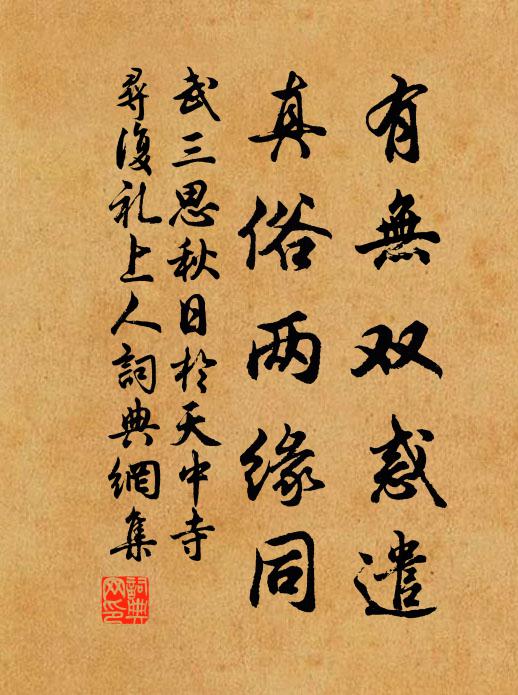 有無双惑遣
真俗两缘同
武三思秋日於天中寺
尋復礼上人詞典網集
詞典网印